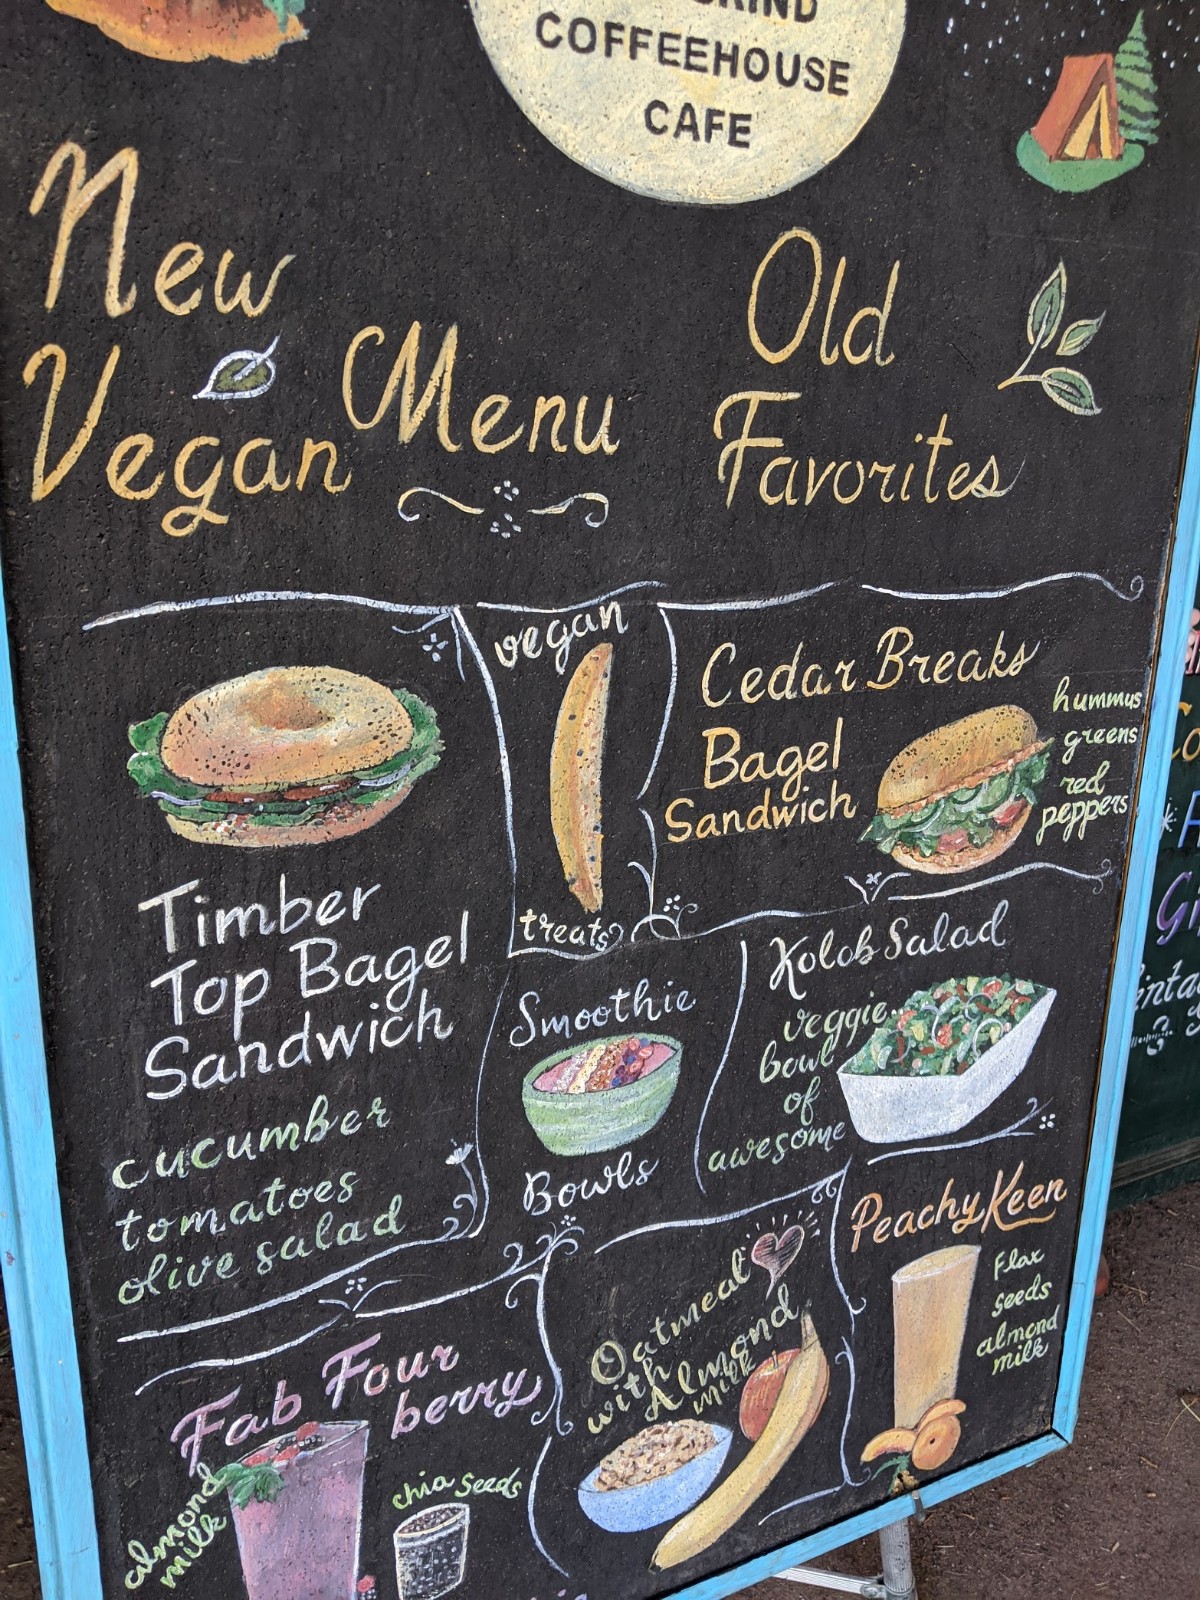 COFFEEHOUSE
CAFE
New
Vegan Menu
Old
Favorites
Timber
Top Bagel
Sandwich
cucumber
tomatoes
olive salad
vegan
treats
Cedar Breaks
Bagel
Sandwich
hummus
greens
red
peppers
Smoothie
Bowls
Kolob Salad
veggie
bowl
of
awesome
Fab Four
berry
almond
milk
chia seeds
Oatmeal
with
Almond
milk
Peachy Keen
Flax
seeds
almond
milk